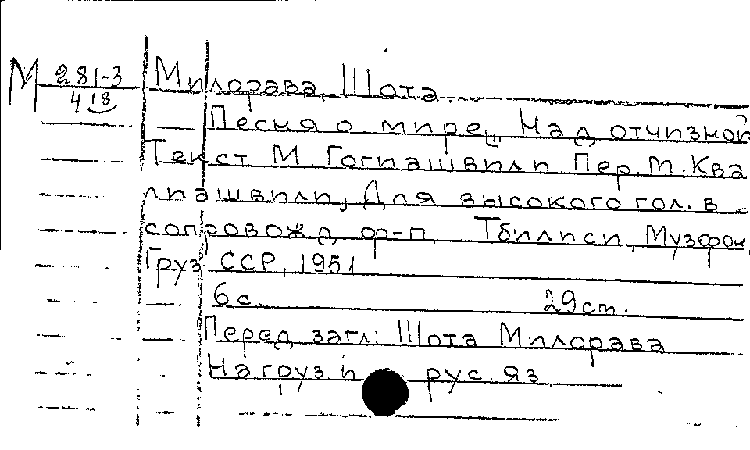 М 281-3
4 18
Милорава, Шота.
Песня о мире „Над отчизной
Текст М. Гогиашвили Пер. М. Ква
лиашвили, Для высокого гол. в
сопровожд. ф-п. Тбилиси, Музфон
Груз ССР, 1951
6 с. 29 cm.
Перед загл: Шота Милорава
На груз и рус. яз